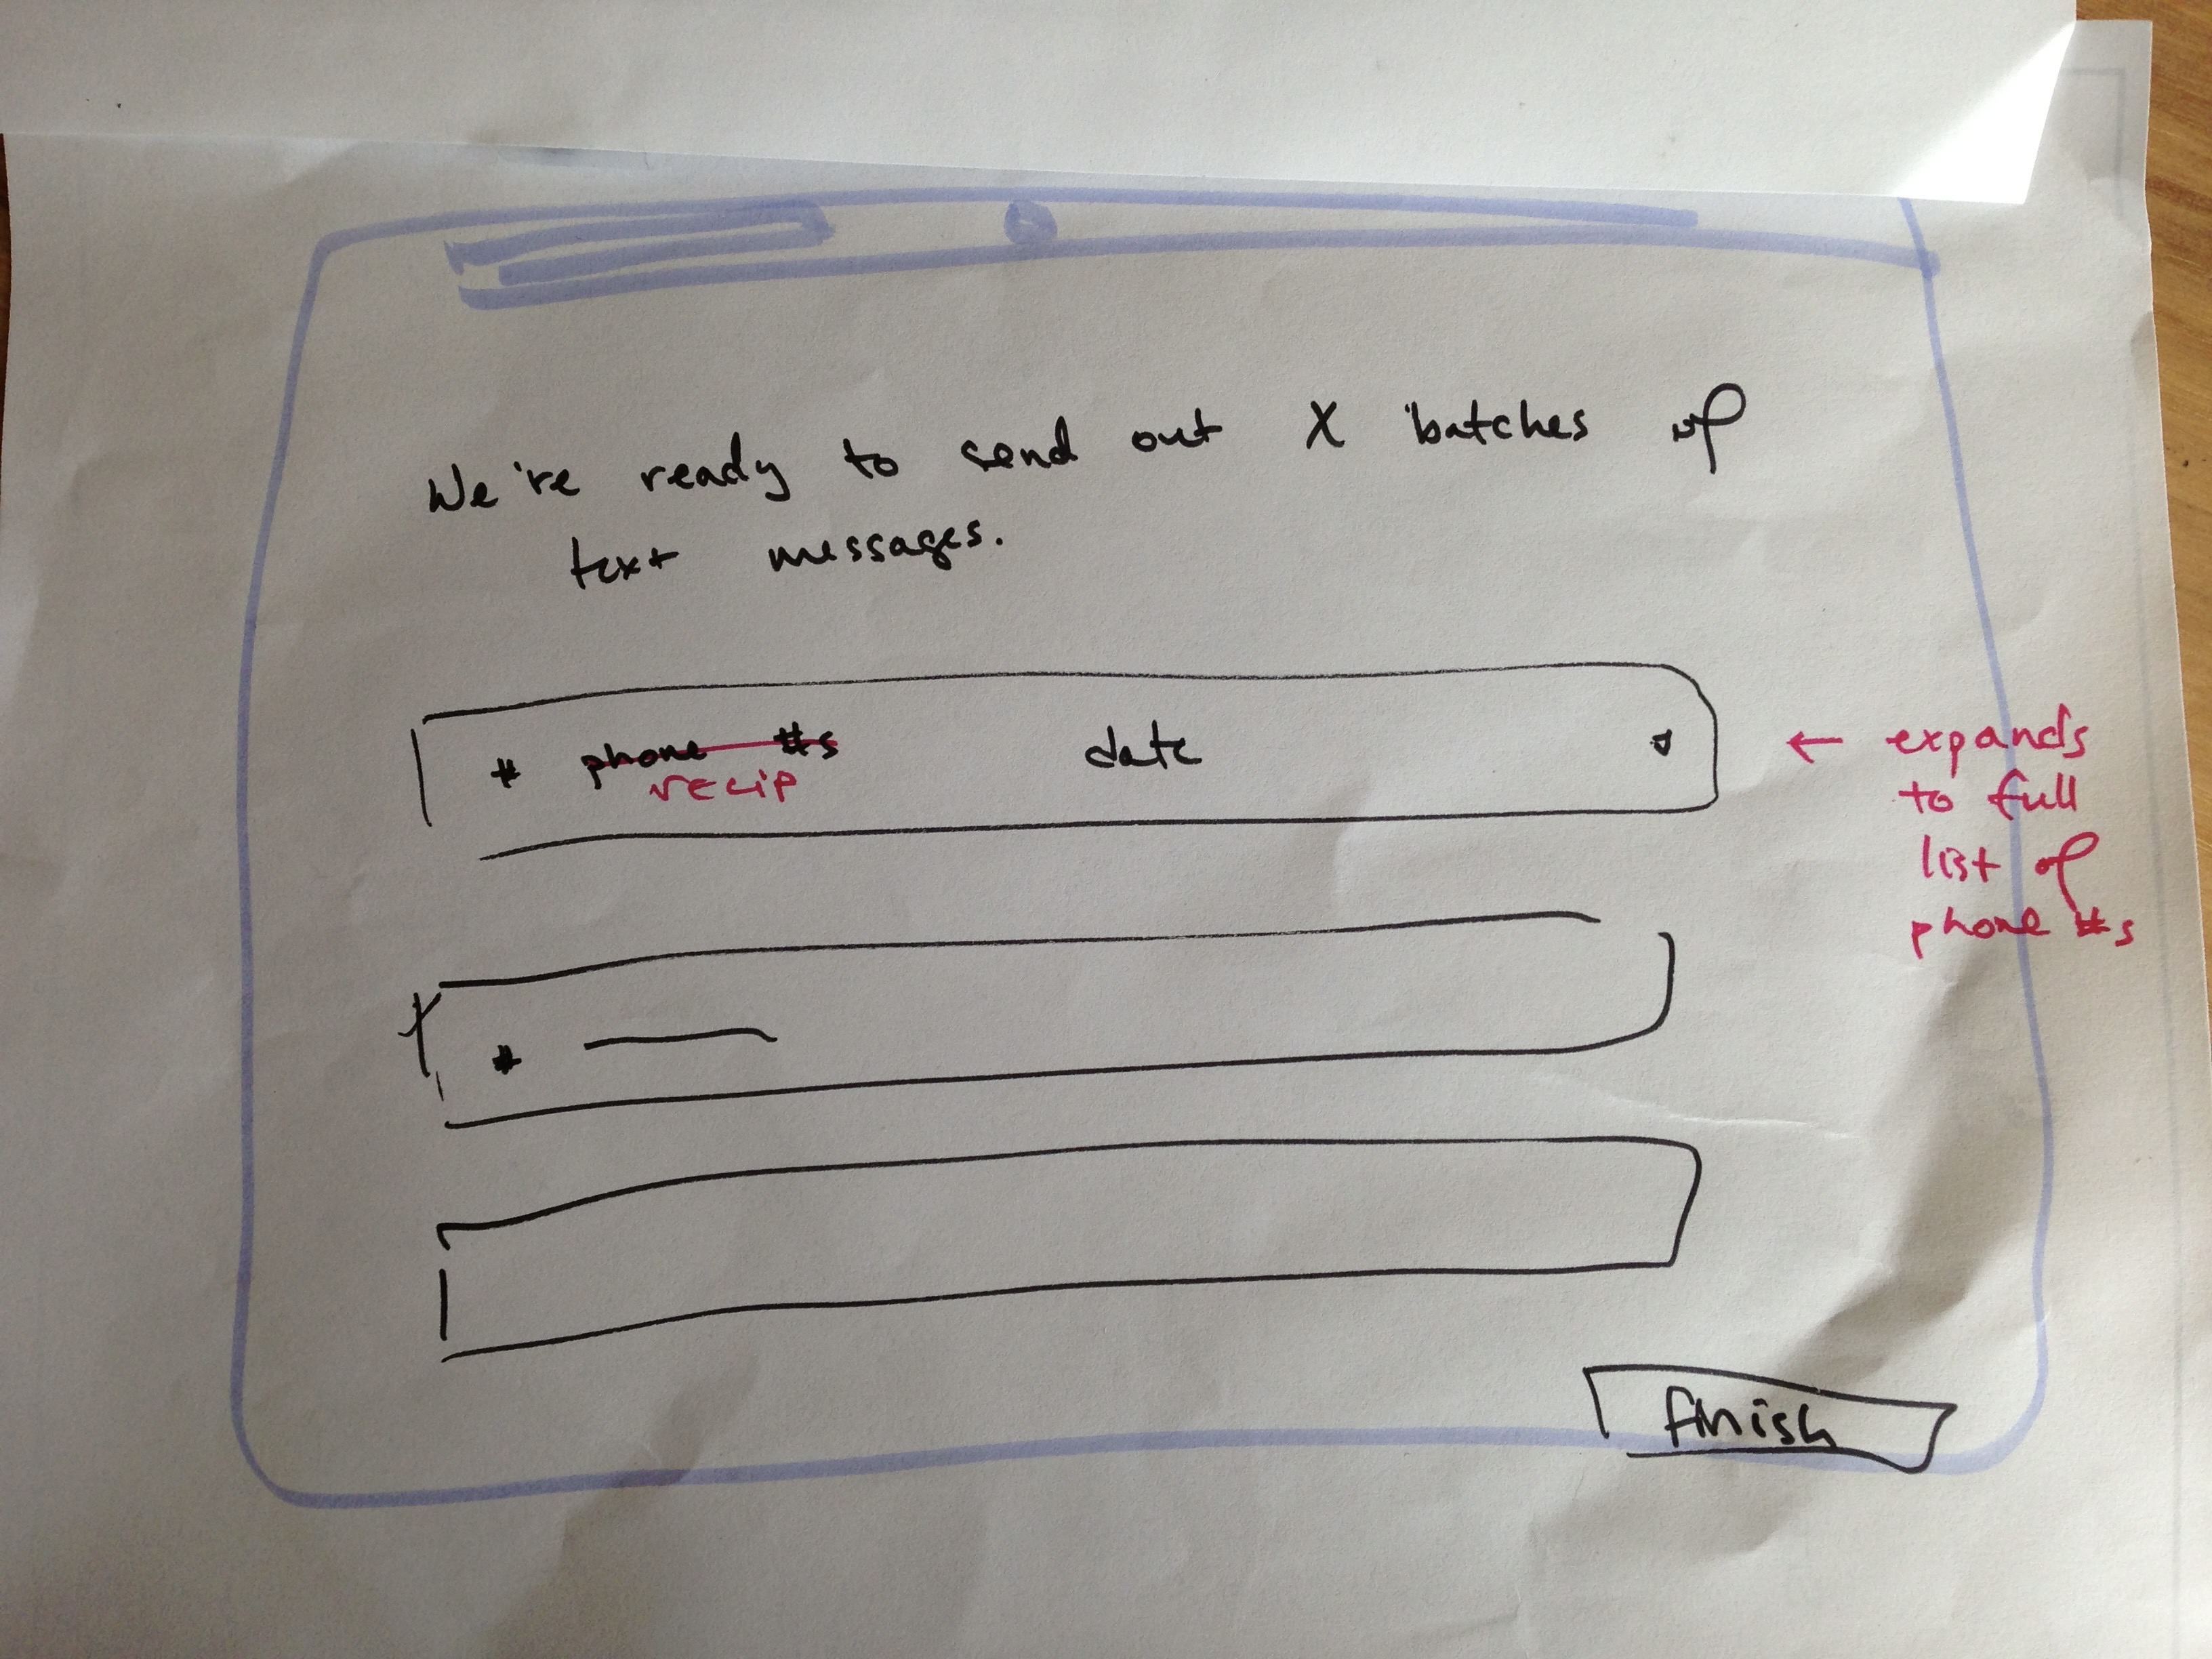 We're ready to send out X batches of
text messages.
# phone #s date
recip
← expands
to full
list of
phone #s
#
finish